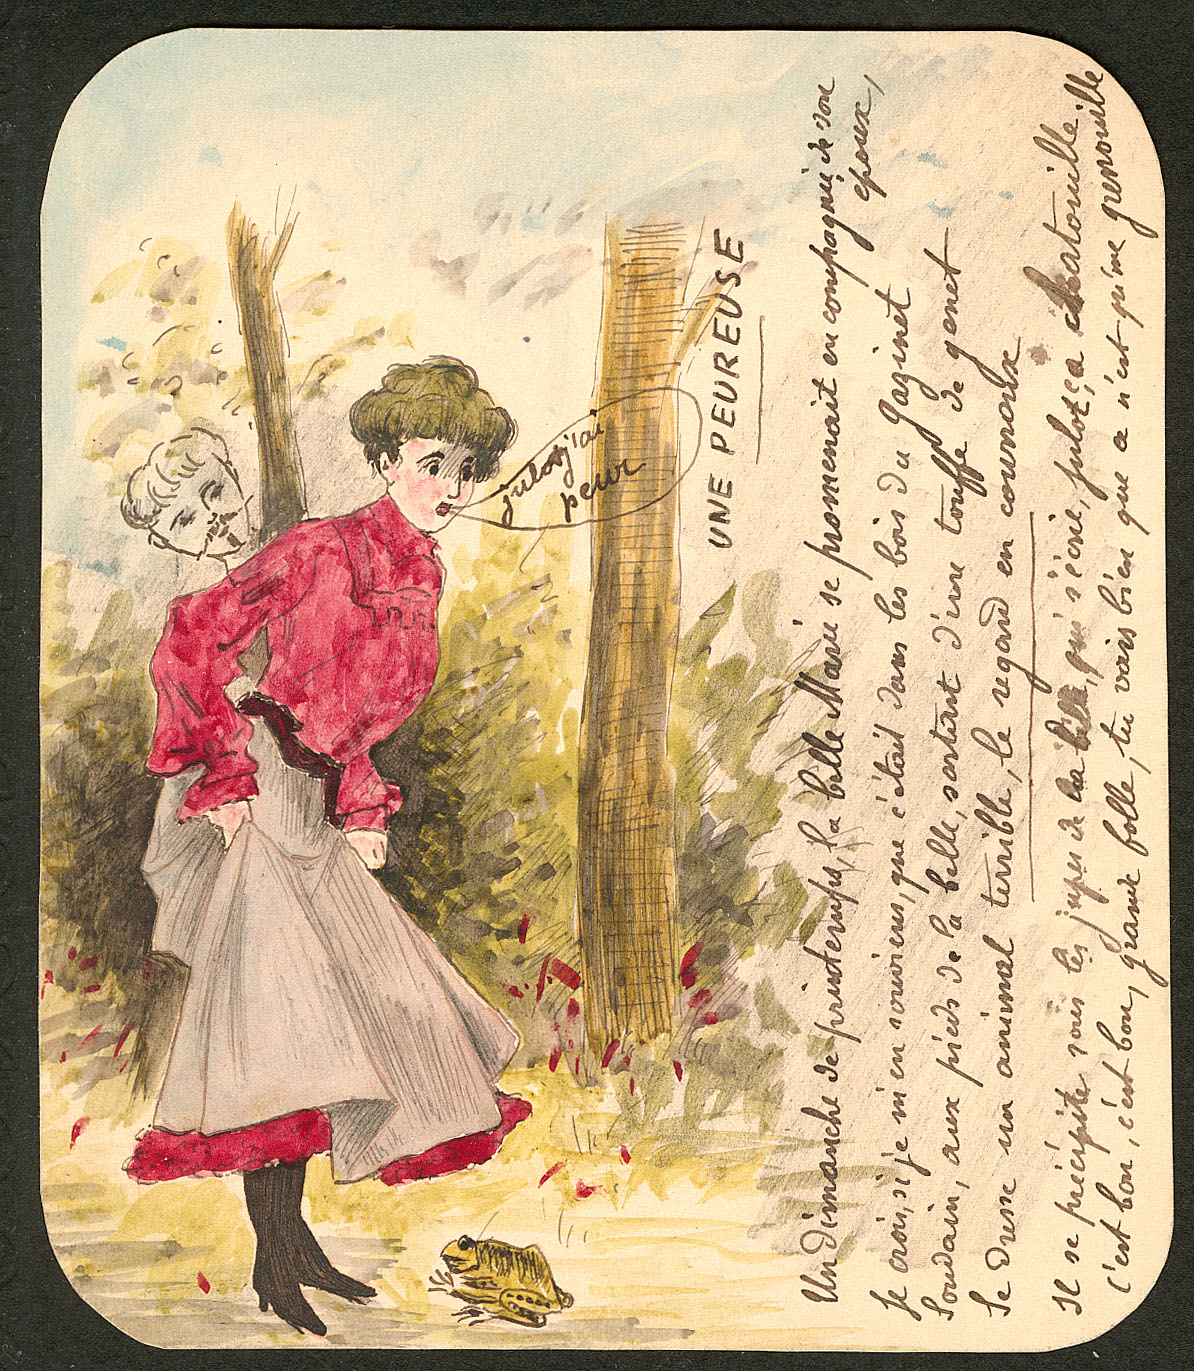 UNE PEUREUSE
julot j'ai
peur
Un dimanche de printemps, la belle Marie se promenait en compagnie de son
époux,
Je crois, si je m'en souviens, que c'était dans les bois du Gazinet
Soudain, aux pieds de la belle, sortant d'une touffe de genet
Se dresse un animal terrible, le regard en courroux
Il se précipite sous les jupes de la belle, qui s'écrie, julot, ça chatouille.
C'est bon, c'est bon, grande folle, tu vois bien que ce n'est qu'une grenouille